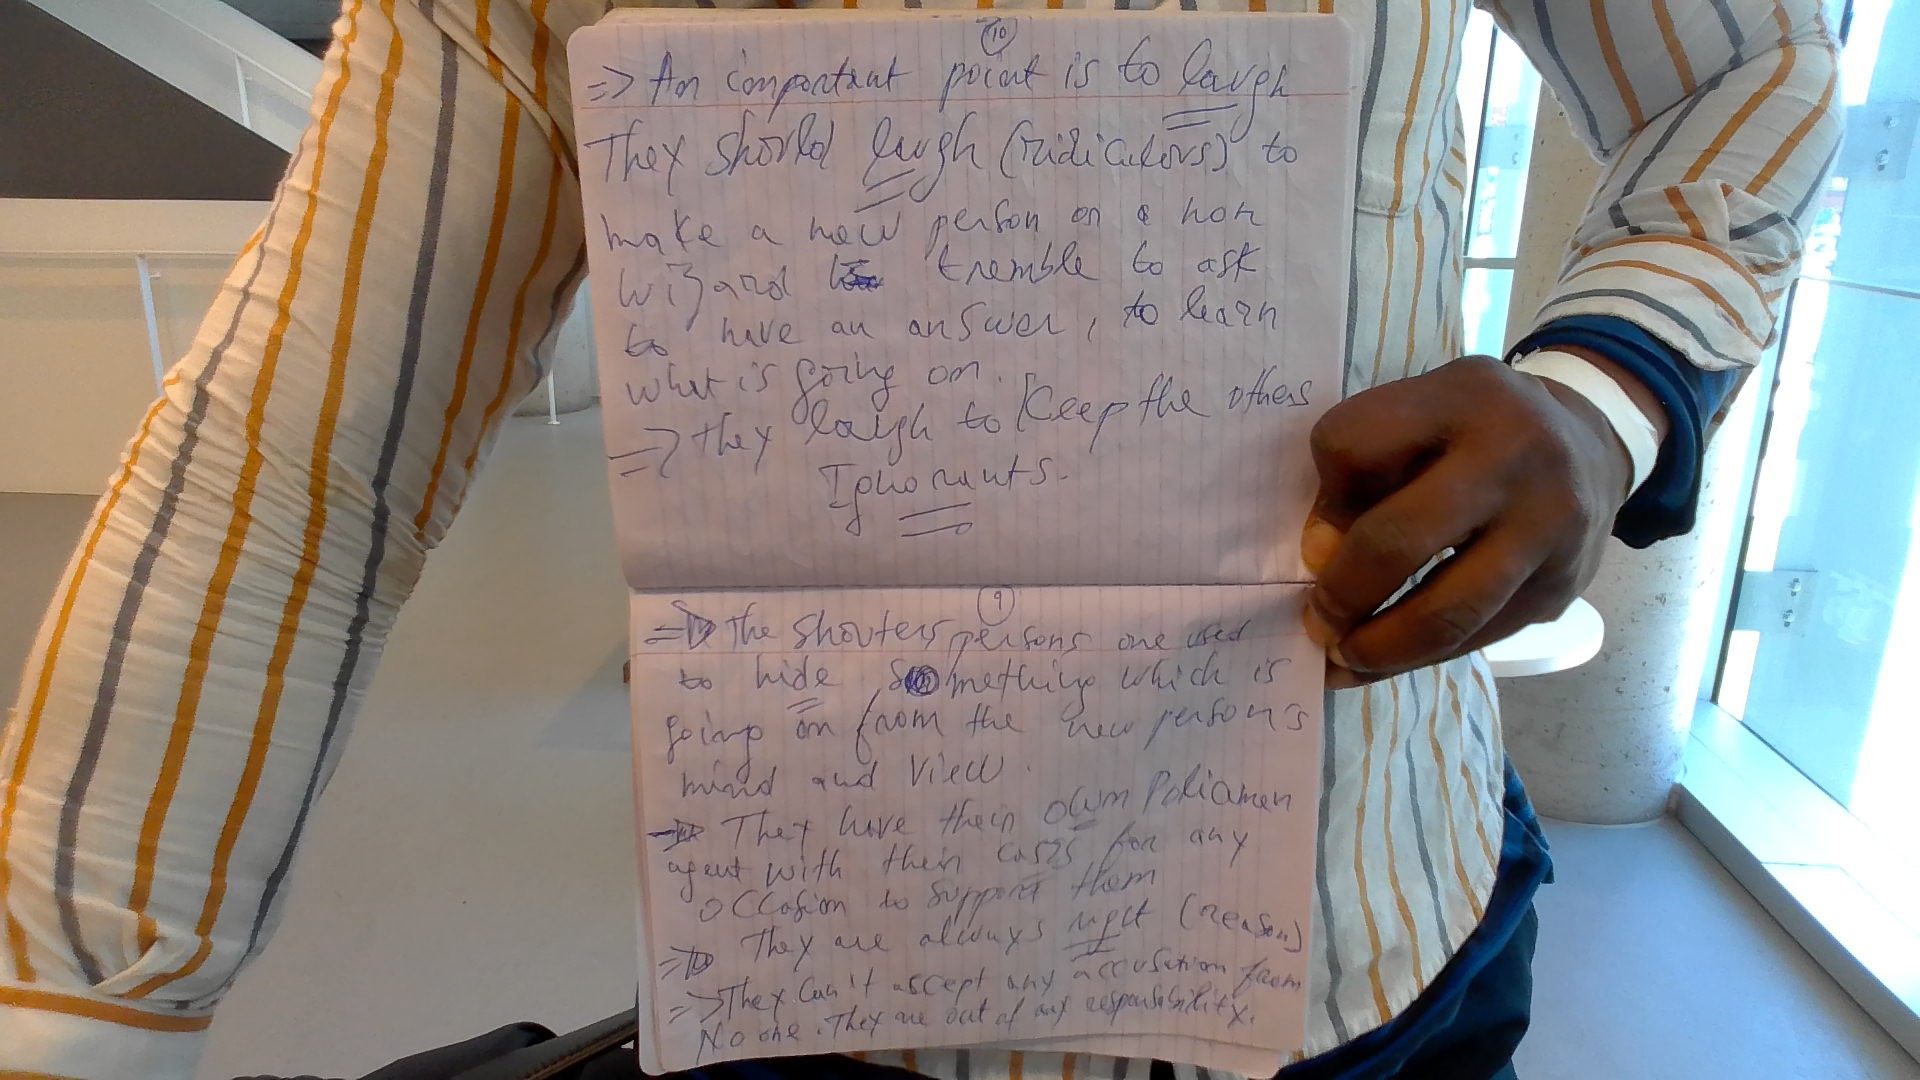 10
=> An important point is to laugh
They should laugh (ridiculous) to
make a new person or a non
wizard tremble to ask
to have an answer, to learn
what is going on.
=> They laugh to Keep the others
Ignorants.
9
=> The shouters persons are used
to hide something which is
going on from the new person's
mind and view.
=> They have their own Parliamen
agent with their cases for any
occasion to support them
=> They are always right (reason)
=> They can't accept any accusation from
No one. They are out of any responsibility.